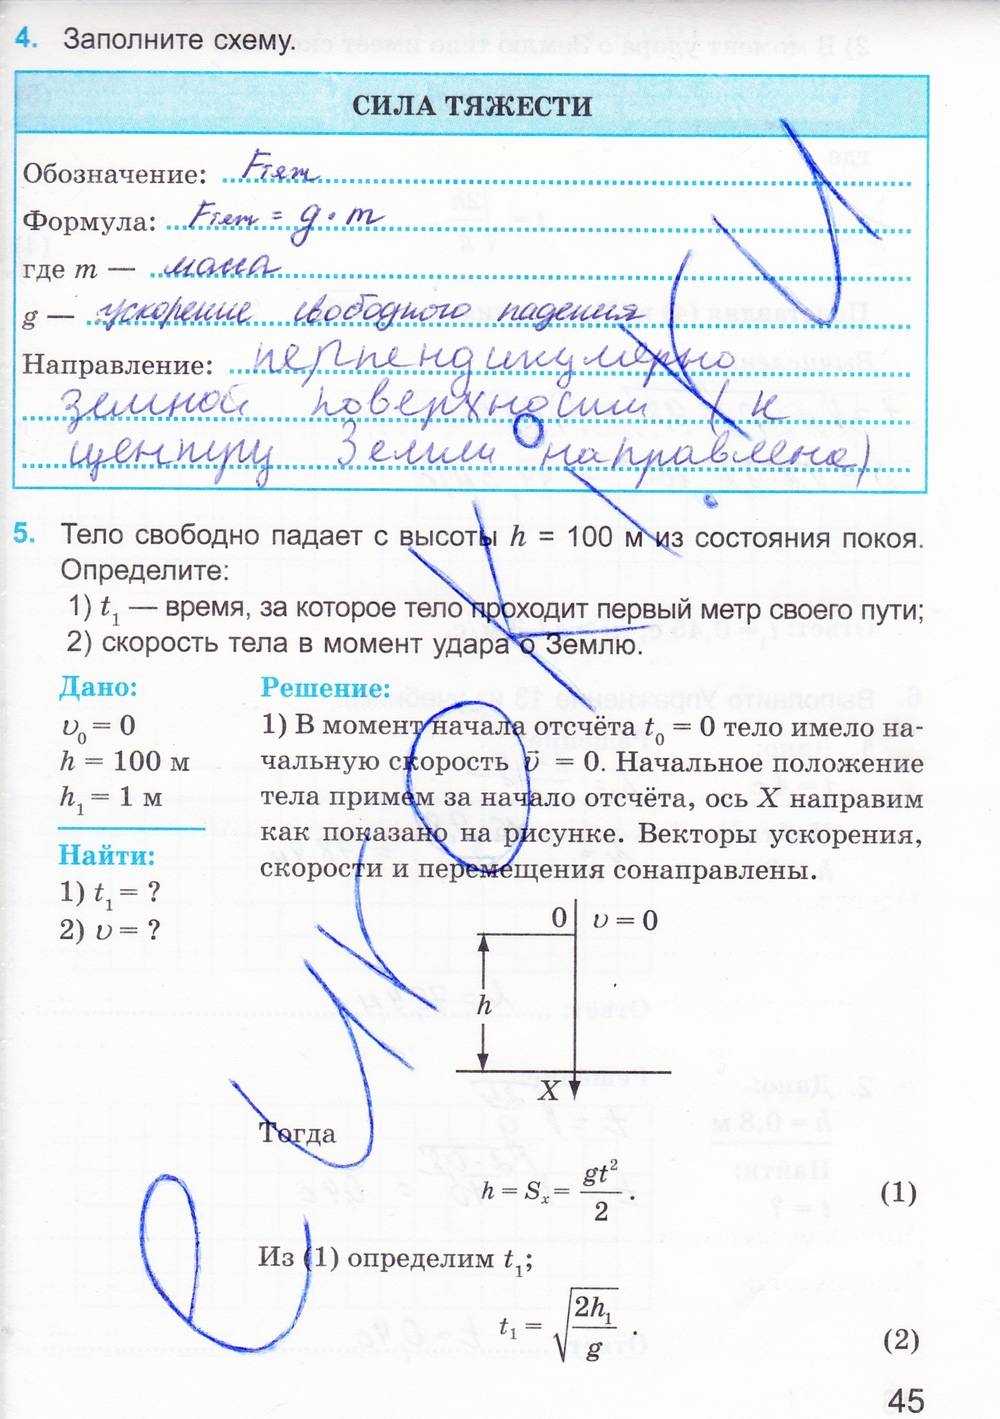 4. Заполните схему.
СИЛА ТЯЖЕСТИ
Обозначение: Fтяж
Формула: Fтяж = g · m
где m — масса
g — ускорение свободного падения
Направление: перпендикулярно
земной поверхности (к
центру Земли направлена)
5. Тело свободно падает с высоты h = 100 м из состояния покоя.
Определите:
1) t₁ — время, за которое тело проходит первый метр своего пути;
2) скорость тела в момент удара о Землю.
Дано:
υ₀ = 0
h = 100 м
h₁ = 1 м
Найти:
1) t₁ = ?
2) υ = ?
Решение:
1) В момент начала отсчёта t₀ = 0 тело имело на-
чальную скорость υ⃗ = 0. Начальное положение
тела примем за начало отсчёта, ось X направим
как показано на рисунке. Векторы ускорения,
скорости и перемещения сонаправлены.
0 υ = 0
h
X
Тогда
h = Sₓ = gt²/2. (1)
Из (1) определим t₁;
t₁ = √(2h₁/g) . (2)
45